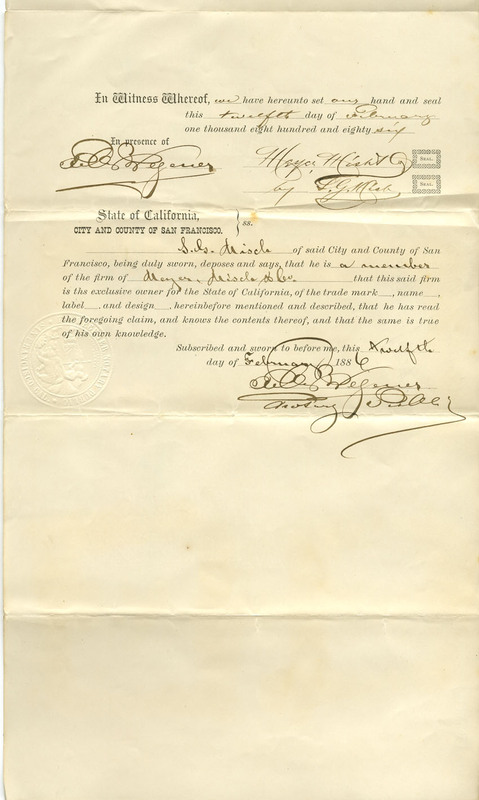 In Witness Whereof, we have hereunto set our hand and seal
this twelfth day of February
one thousand eight hundred and eighty six
In presence of
Wegener
SEAL.
by S. G. Misch
SEAL.
State of California,
CITY AND COUNTY OF SAN FRANCISCO. } ss.
S. G. Misch of said City and County of San
Francisco, being duly sworn, deposes and says, that he is a member
of the firm of Meyer, Misch & Co. that this said firm
is ths exclusive owner for the State of California, of the trade mark , name ,
label , and design , hereinbefore mentioned and described, that he has read
the foregoing claim, and knows the contents thereof, and that the same is true
of his own knowledge.
Subscribed and sworn to before me, this twelfth
day of February 1886
Wegener
Notary Public